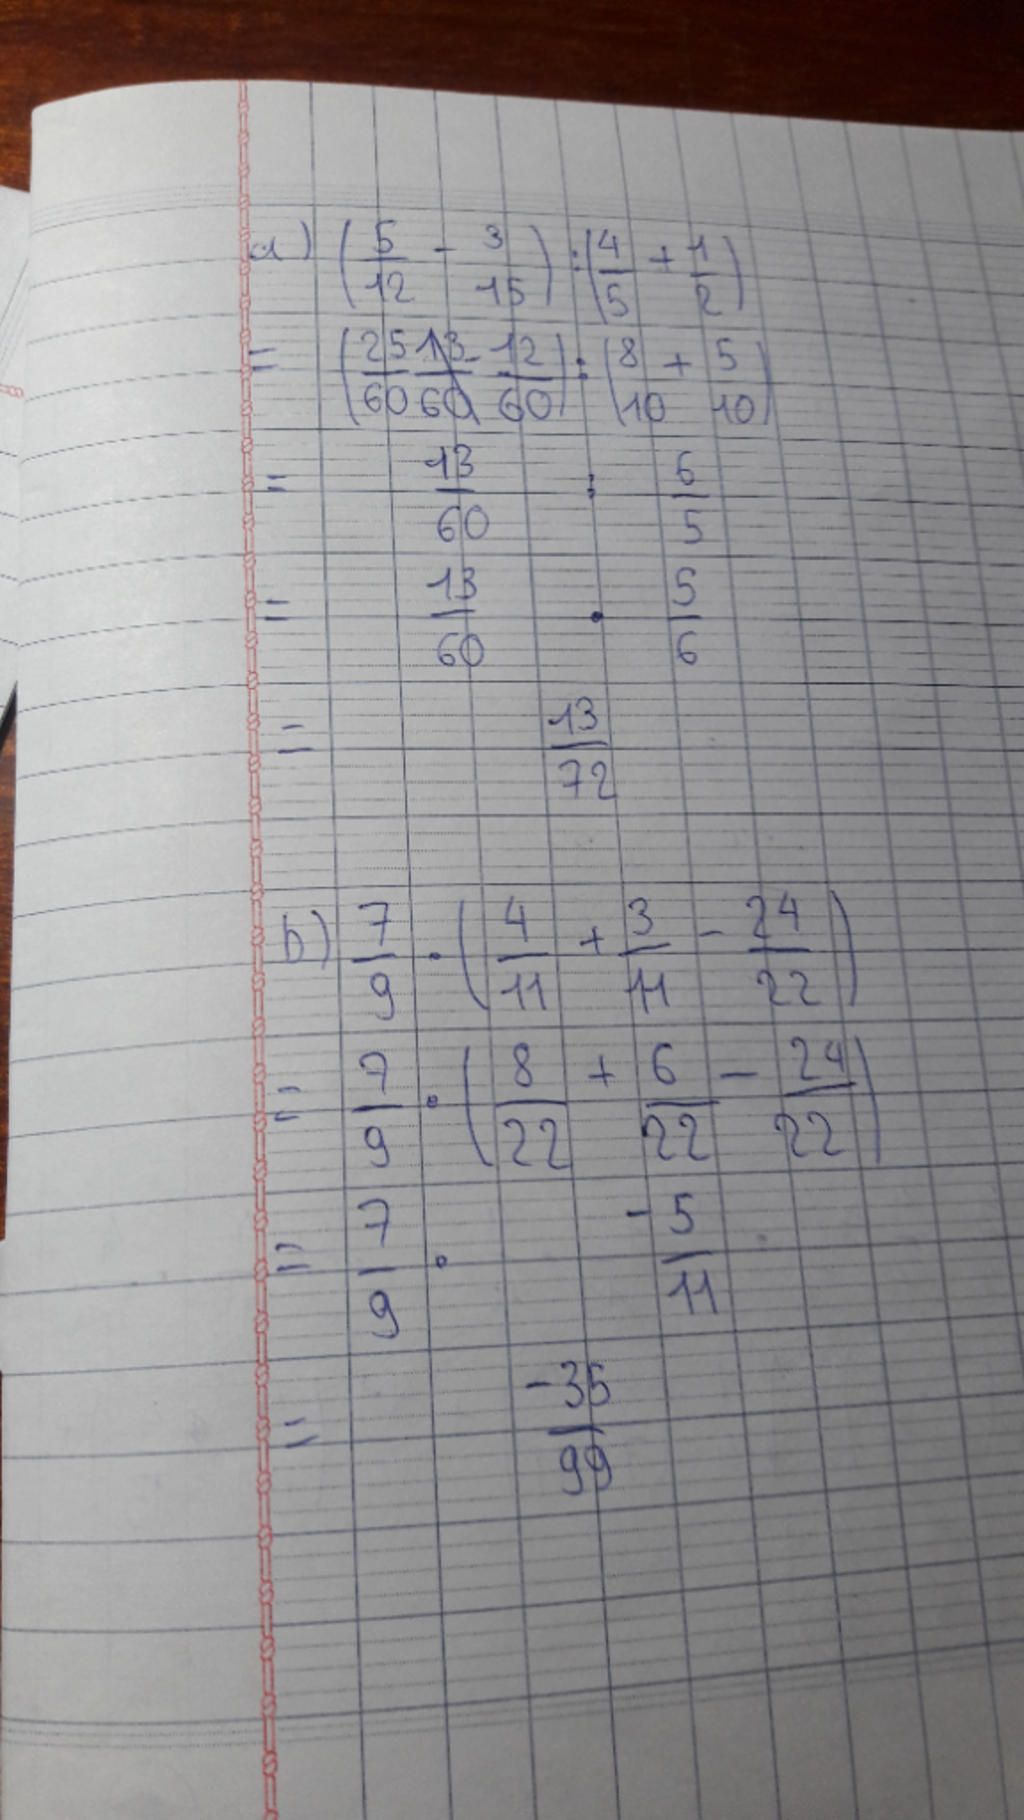 a) (5/12 - 3/15) : (4/5 + 1/2)
= (25/60 - 12/60) : (8/10 + 5/10)
= 13/60 : 6/5
= 13/60 . 5/6
= 13/72
b) 7/9 . (4/11 + 3/11 - 24/22)
= 7/9 . (8/22 + 6/22 - 24/22)
= 7/9 . -5/11
= -35/99